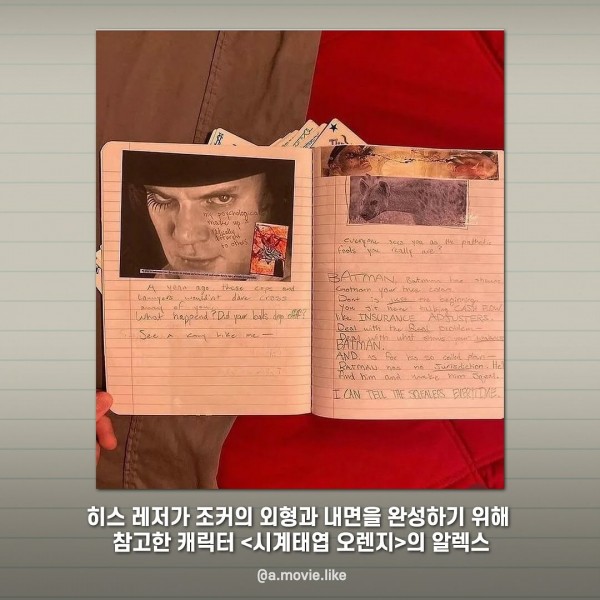 my psychologic
make up is
totally
different
to others
A year ago these cops and
lawyers wouldn't dare cross
any of you.
What happend? Did your balls drop off?
See a guy like me —
everyone sees you as the pathetic
fools you really are?
BATMAN. Batman has shown
Gotham your true colors
Dent is just the beginning.
You sit here talking CASH FLOW
like INSURANCE ADJUSTERS!
Deal with the Real problem —
Deal with what
BATMAN.
AND as for his so called plan —
BATMAN has no Jurisdiction. He'll
find him and make him Squeal.
I CAN TELL THE SQUEALERS EVERYTIME.
히스 레저가 조커의 외형과 내면을 완성하기 위해
참고한 캐릭터 <시계태엽 오렌지>의 알렉스
@a.movie.like